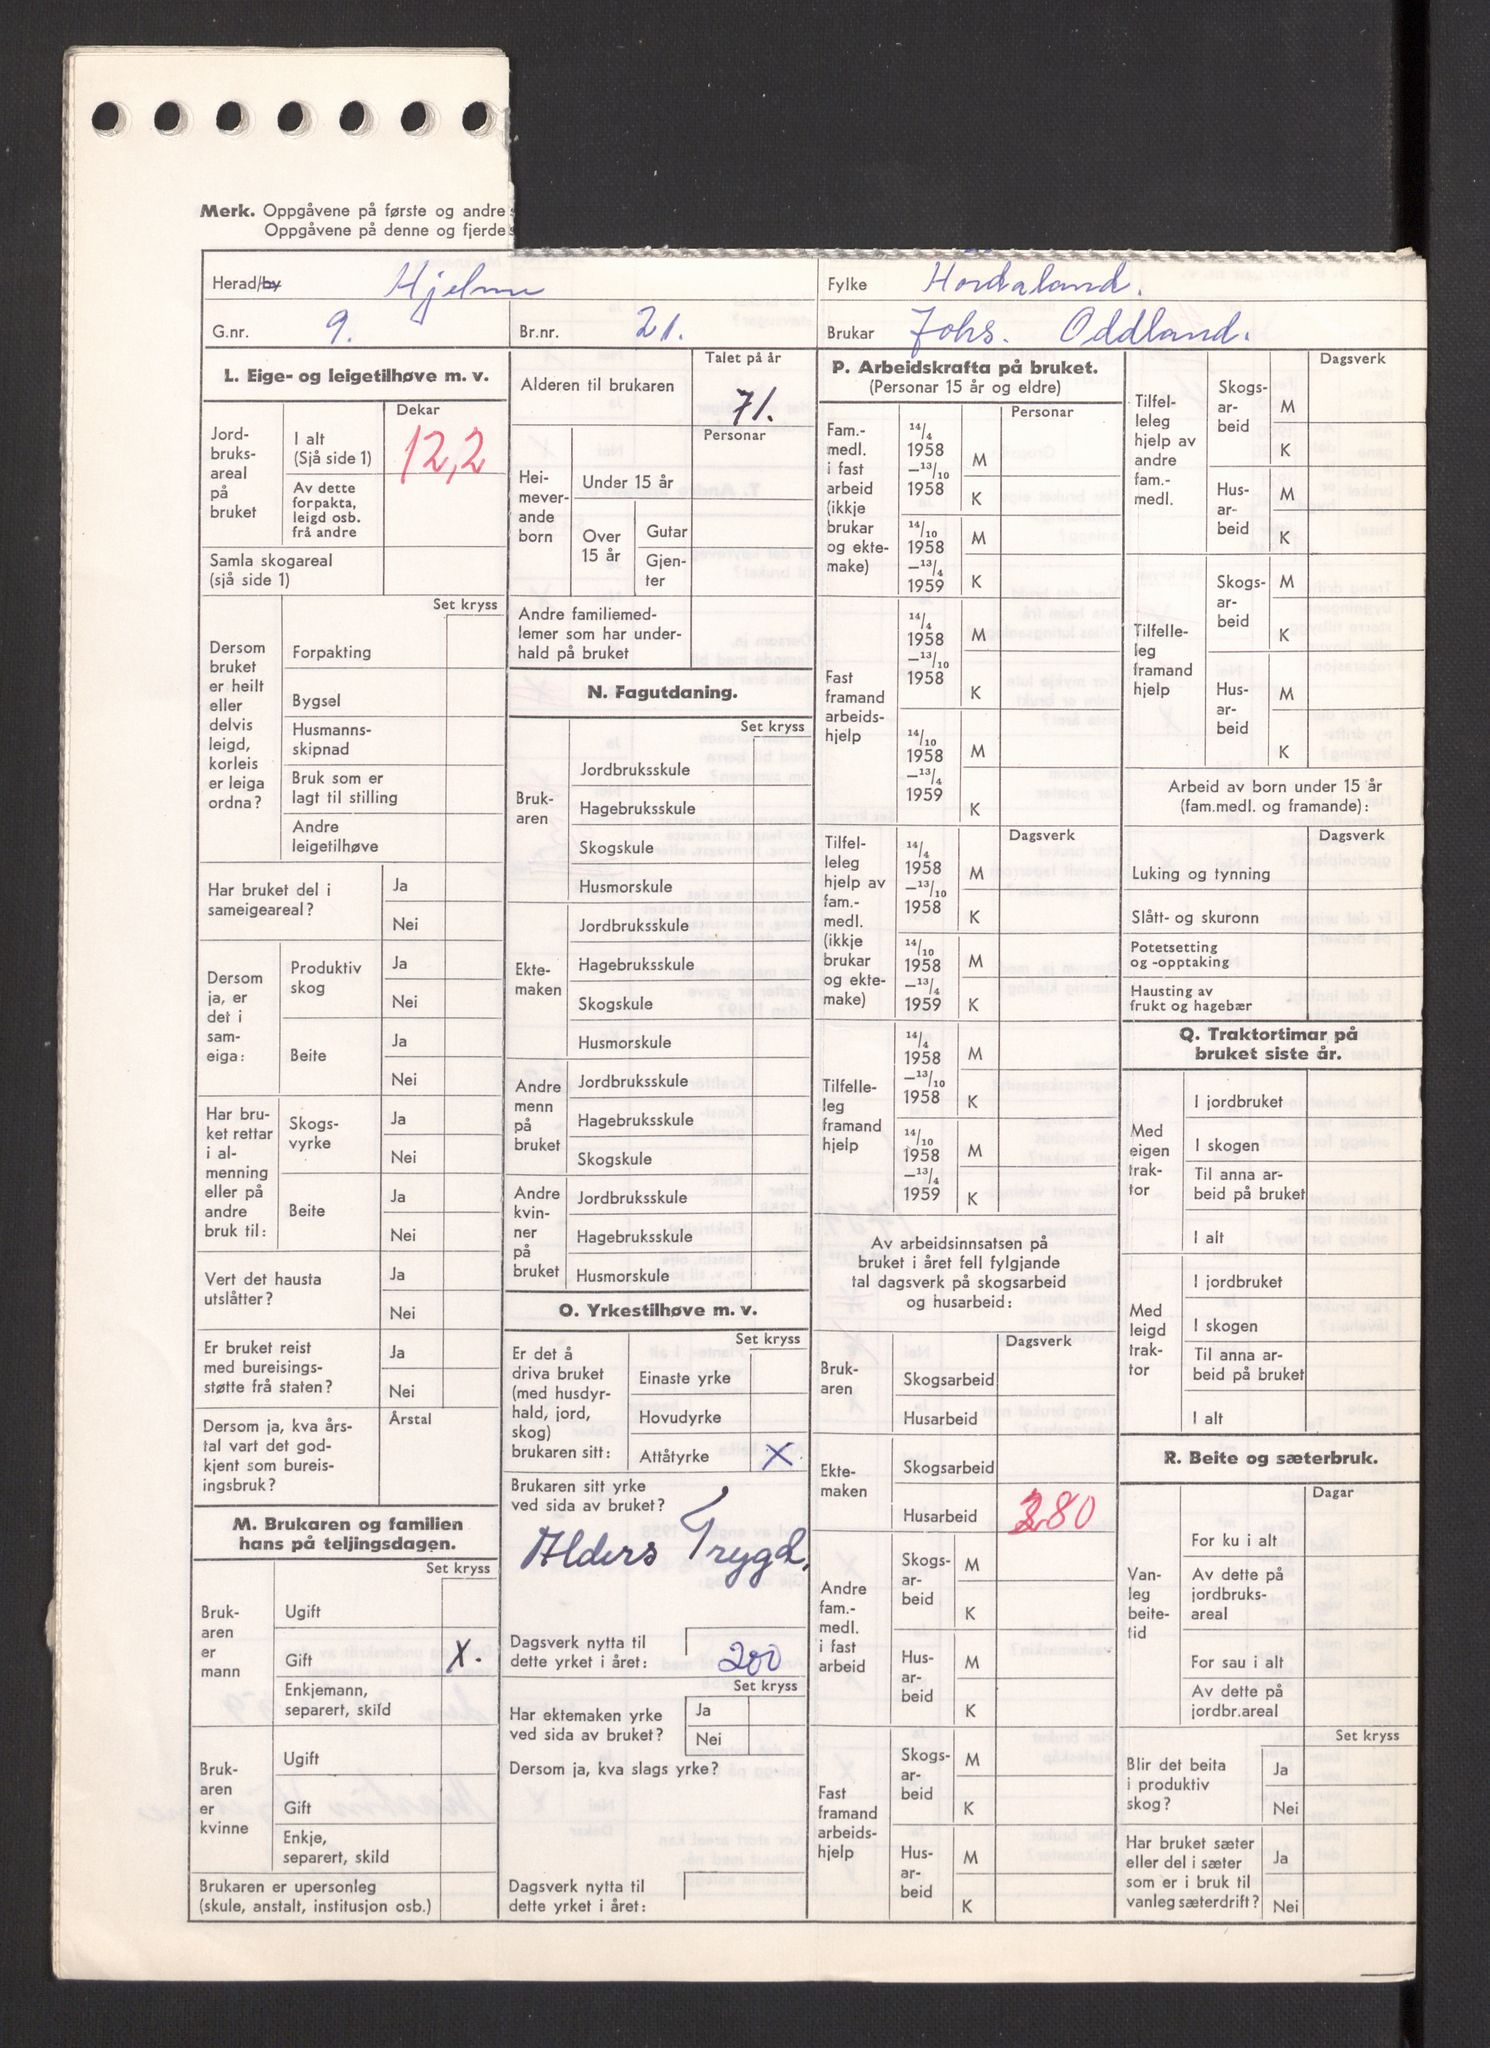 Merk. Oppgåvene på første og andre s
Oppgåvene på denne og fjerde s
Herad/by Hjelme
Fylke Hordaland.
G.nr. 9.
Br.nr. 21.
Brukar Johs. Oddland.
L. Eige- og leigetilhøve m. v.
Dekar
Jord-
bruks-
areal
på
bruket
I alt
(Sjå side 1)
12,2
Av dette
forpakta,
leigd osb.
frå andre
Samla skogareal
(sjå side 1)
Set kryss
Dersom
bruket
er heilt
eller
delvis
leigd,
korleis
er leiga
ordna?
Forpakting
Bygsel
Husmanns-
skipnad
Bruk som er
lagt til stilling
Andre
leigetilhøve
Har bruket del i
sameigeareal?
Ja
Nei
Dersom
ja, er
det i
sam-
eiga:
Produktiv
skog
Ja
Nei
Beite
Ja
Nei
Har bru-
ket rettar
i al-
menning
eller på
andre
bruk til:
Skogs-
vyrke
Ja
Nei
Beite
Ja
Nei
Vert det hausta
utslåtter?
Ja
Nei
Er bruket reist
med bureisings-
støtte frå staten?
Ja
Nei
Dersom ja, kva års-
tal vart det god-
kjent som bureis-
ingsbruk?
Årstal
M. Brukaren og familien
hans på teljingsdagen.
Set kryss
Bruk-
aren
er
mann
Ugift
Gift X.
Enkjemann,
separert, skild
Bruk-
aren
er
kvinne
Ugift
Gift
Enkje,
separert, skild
Brukaren er upersonleg
(skule, anstalt, institusjon osb.)
Talet på år
Alderen til brukaren
71.
Personar
Hei-
mever-
ande
born
Under 15 år
Over
15 år
Gutar
Gjen-
ter
Andre familiemed-
lemer som har under-
hald på bruket
N. Fagutdaning.
Set kryss
Bruk-
aren
Jordbruksskule
Hagebruksskule
Skogskule
Husmorskule
Ekte-
maken
Jordbruksskule
Hagebruksskule
Skogskule
Husmorskule
Andre
menn
på
bruket
Jordbruksskule
Hagebruksskule
Skogskule
Andre
kvin-
ner
på
bruket
Jordbruksskule
Hagebruksskule
Husmorskule
O. Yrkestilhøve m. v.
Set kryss
Er det å
driva bruket
(med husdyr-
hald, jord,
skog)
brukaren sitt:
Einaste yrke
Hovudyrke
Attåtyrke X
Brukaren sitt yrke
ved sida av bruket?
Alders Trygd.
Dagsverk nytta til
dette yrket i året:
200
Set kryss
Har ektemaken yrke
ved sida av bruket?
Ja
Nei
Dersom ja, kva slags yrke?
Dagsverk nytta til
dette yrket i året:
P. Arbeidskrafta på bruket.
(Personar 15 år og eldre)
Personar
Fam.-
medl.
i fast
arbeid
(ikkje
brukar
og ekte-
make)
14/4
1958
—13/10
1958
M
K
14/10
1958
—13/4
1959
M
K
Fast
framand
arbeids-
hjelp
14/4
1958
—13/10
1958
M
K
14/10
1958
—13/4
1959
M
K
Dagsverk
Tilfel-
leleg
hjelp av
fam.-
medl.
(ikkje
brukar
og ekte-
make)
14/4
1958
—13/10
1958
M
K
14/10
1958
—13/4
1959
M
K
Tilfelle-
leg
framand
hjelp
14/4
1958
—13/10
1958
M
K
14/10
1958
—13/4
1959
M
K
Av arbeidsinnsatsen på
bruket i året fell fylgjande
tal dagsverk på skogsarbeid
og husarbeid:
Dagsverk
Bruk-
aren
Skogsarbeid
Husarbeid
Ekte-
maken
Skogsarbeid
Husarbeid 280
Andre
fam.-
medl.
i fast
arbeid
Skogs-
ar-
beid
M
K
Hus-
ar-
beid
M
K
Fast
framand
arbeids-
hjelp
Skogs-
ar-
beid
M
K
Hus-
ar-
beid
M
K
Dagsverk
Tilfel-
leleg
hjelp av
andre
fam.-
medl.
Skogs-
ar-
beid
M
K
Hus-
ar-
beid
M
K
Tilfelle-
leg
framand
hjelp
Skogs-
ar-
beid
M
K
Hus-
ar-
beid
M
K
Arbeid av born under 15 år
(fam.medl. og framande):
Dagsverk
Luking og tynning
Slått- og skuronn
Potetsetting
og -opptaking
Hausting av
frukt og hagebær
Q. Traktortimar på
bruket siste år.
Med
eigen
trak-
tor
I jordbruket
I skogen
Til anna ar-
beid på bruket
I alt
Med
leigd
trak-
tor
I jordbruket
I skogen
Til anna ar-
beid på bruket
I alt
R. Beite og sæterbruk.
Dagar
Van-
leg
beite-
tid
For ku i alt
Av dette på
jordbruks-
areal
For sau i alt
Av dette på
jordbr.areal
Set kryss
Blir det beita
i produktiv
skog?
Ja
Nei
Har bruket sæter
eller del i sæter
som er i bruk til
vanleg sæterdrift?
Ja
Nei